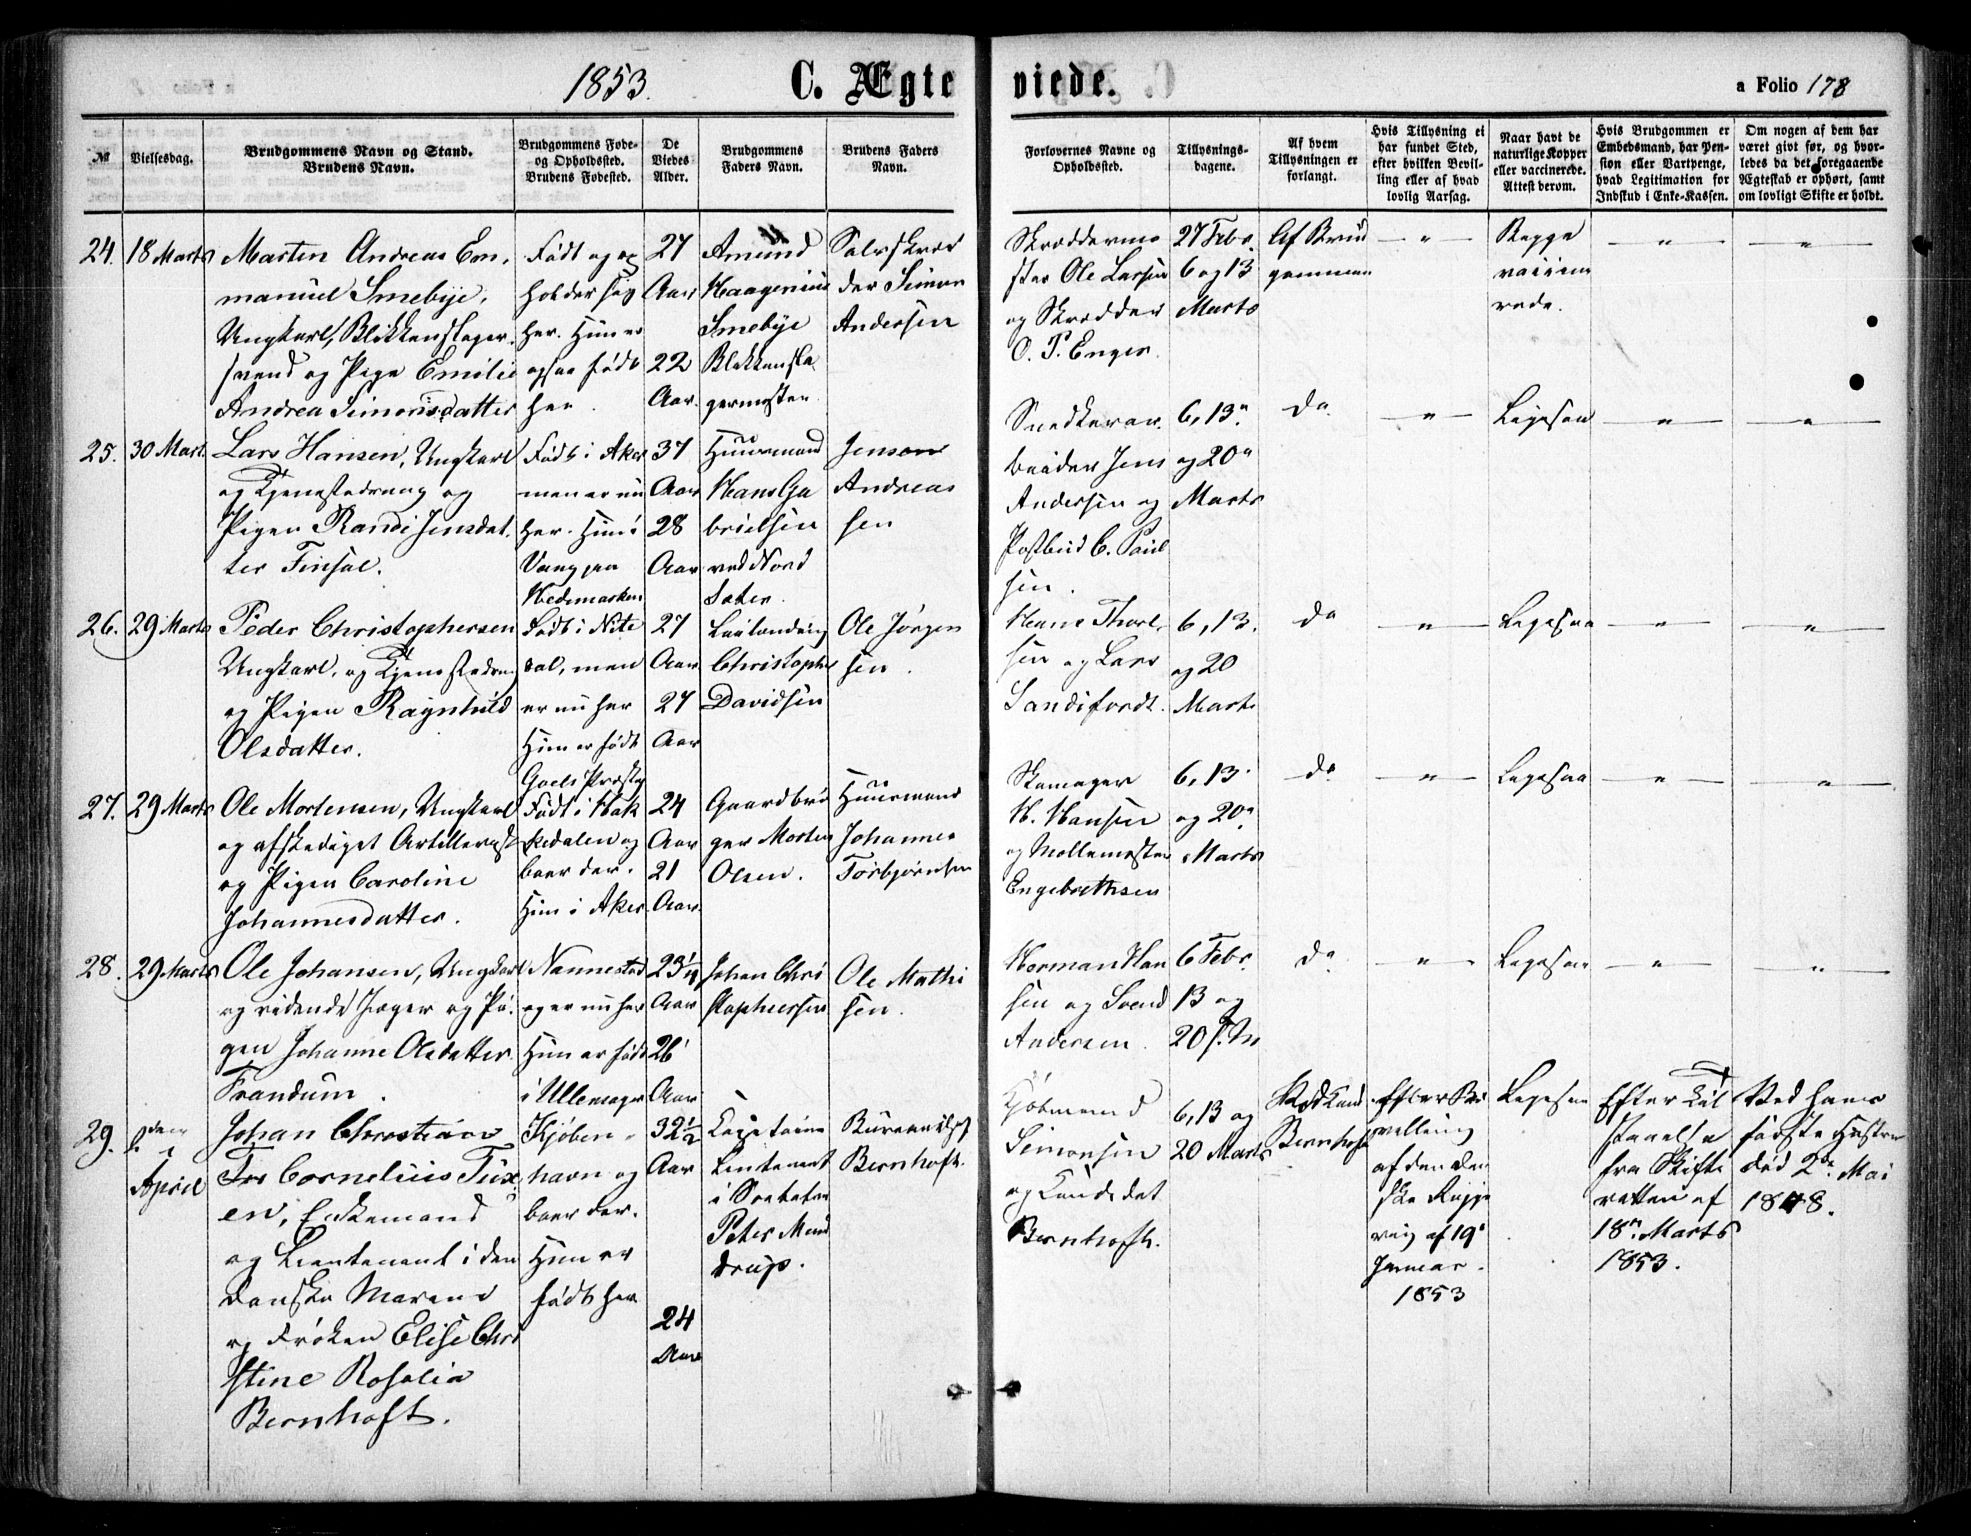 1853.
C. Ægte
viede.
a Folio 178
№
Vielsesdag.
Brudgommens Navn og Stand.
Brudens Navn.
Brudgommens Føde-
og Opholdssted.
Brudens Fødested.
De
Viedes
Alder.
Brudgommens
Faders Navn.
Brudens Faders
Navn.
Forlovernes Navne og
Opholdssted.
Tillysnings-
dagene.
Af hvem
Tillysningen er
forlangt.
Hvis Tillysning ei
har fundet Sted,
efter hvilken Bevil-
ling eller af hvad
lovlig Aarsag.
Naar havt de
naturlige Kopper
eller vaccinerede.
Attest derom.
Hvis Brudgommen er
Embedsmand, har Pen-
sion eller Vartpenge,
hvad Legitimation for
Indskud i Enke-Kassen.
Om nogen af dem har
været givt før, og hvor-
ledes da det foregaaende
Ægteskab er ophørt, samt
om lovligt Skifte er holdt.
24.
18 Marts
Marten Andreas Em,
manuel Smebye,
Ungkarl, Blikkenslager,
svend og Pige Emilie
Andrea Simonsdatter
Født og op
holder sig
her. Hun er
ogsaa født
her.
27
Aar
22
Aar.
Amund
Haagenius
Smebye
Blikkensla
germester
Selvskræd
der Simon
Andersen
Skræddermе
ster Ole Larsen
og Skrædder
O. P. Enger.
27 Febr.
6 og 13
Marts
Af Brud
gommen
— " —
Begge
vaccine
rede.
— " —
— " —
25.
30 Mart.
Lars Hansen, Ungkarl
og Tjenestedreng og
Pigen Randi Jensdat,
ter Finsal.
Født i Aker
men er nu
her. Hun i
Vang paa
Hedemarken
37
Aar
28
Aar
Huusmand
Hans Ga
brielsen
ved Nord
Sæter.
Jens
Andreas
sen
Snedkerar,
beider Jens
Andersen og
Postbud C. Paul
sen.
6, 13"
og 20"
Marts
do
— " —
Ligesaa
— " —
— " —
26.
29 Marts
Peder Christophersen
Ungkarl, og Tjenestedreng
og Pigen Ragnhild
Olsdatter.
Født i Nite
dal, men
er nu her
Hun er født
Goels Præstg
27
Aar
27
Aar
Christophe
Davidsen
Ole Jørgen
sen.
Hans Thorl,
sen og Lars
Sandifordt.
6, 13.
og 20
Marts
do
— " —
Ligesaa
— " —
— " —
27.
29 Marts
Ole Mortensen, Ungkarl
og afskediget Artillerist
og Pigen Caroline
Johannesdatter.
Født i Hak
kedalen og
boer der.
Hun i Aker.
24
Aar
21
Aar.
Gaardbru
ger Morten
Olsen.
Huusmand
Johannes
Torbjørnsen
Skomager
H. Hansen
og Møllemester
Engebrethsen
6, 13.
og 20"
Marts
do
— " —
Ligesaa
— " —
— " —
28.
29 Marts
Ole Johansen, Ungkarl
og ridende Jæger og Pi,
gen Johanne Olsdatter
Trandum.
Nannestad
og er nu her
Hun er født
i Ullensager
23¼
Aar
26
Aar
Johan Chri
stophersen
Ole Mathi
sen.
Herman Han
sen og Svend
Andersen.
6 Febr.
13 og
20 s. M
do
— " —
Ligesaa
— " —
— " —
29.
April
Johan Christian
Cornelius Tux,
en, Enkemand
og Lieutenant i den
danske Marine
og Frøken Elise Chri
stine Rosalia
Bernhoft.
Kjøben,
havn og
boer der.
Hun er
født her
32½
Aar
24
Aar
Capitain
Lieutenant
i Søetaten
Peter Mun
drup.
Bernhoft.
Kjøbmand
Simonsen
og Candidat
Bernhoft.
6, 13 og
20 Marts
Bernhoft
Efter Be
villing
af den dan
ske Regje
ring af 19'
Januar
1853
Ligesaa
Efter Til
stаaelse
fra Skifte
retten af
18" Marts
1853.
Ved hans
første Hustru
død 2de Mai
1848.